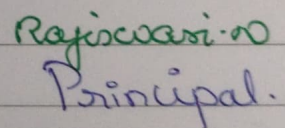 Rajiswari.N
Principal.